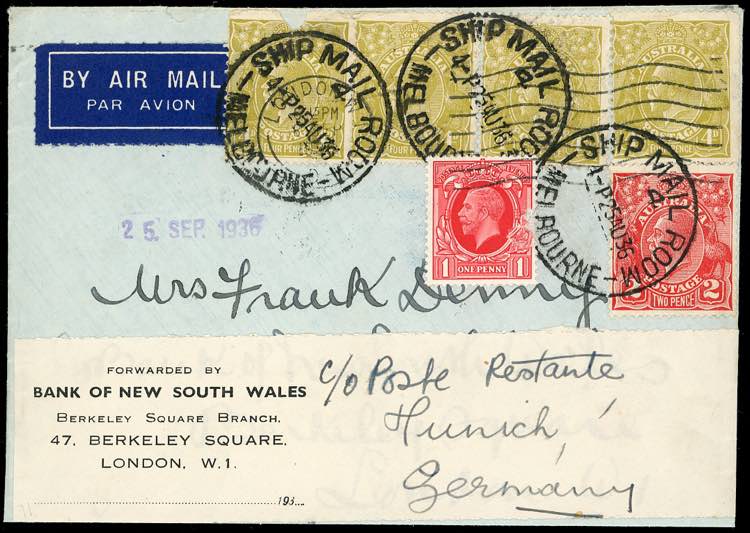 BY AIR MAIL
PAR AVION
AUSTRALIA
POSTAGE
FOUR PENCE
AUSTRALIA
POSTAGE
AUSTRALIA
POSTAGE
AUSTRALIA
POSTAGE 4D
FOUR PENCE
SHIP MAIL ROOM
4-P 25 AU 36
MELBOURNE
SHIP MAIL ROOM
4-P 25 AU 36
MELBOURNE
SHIP MAIL ROOM
4-P 25 AU 36
MELBOURNE
LONDON
25 SEP. 1936
1 ONE PENNY 1
AUSTRALIA
POSTAGE
TWO PENCE 2
Mrs Frank Denny
FORWARDED BY
BANK OF NEW SOUTH WALES
BERKELEY SQUARE BRANCH,
47, BERKELEY SQUARE,
LONDON, W.1.
193
c/o Poste Restante
Munich,
Germany